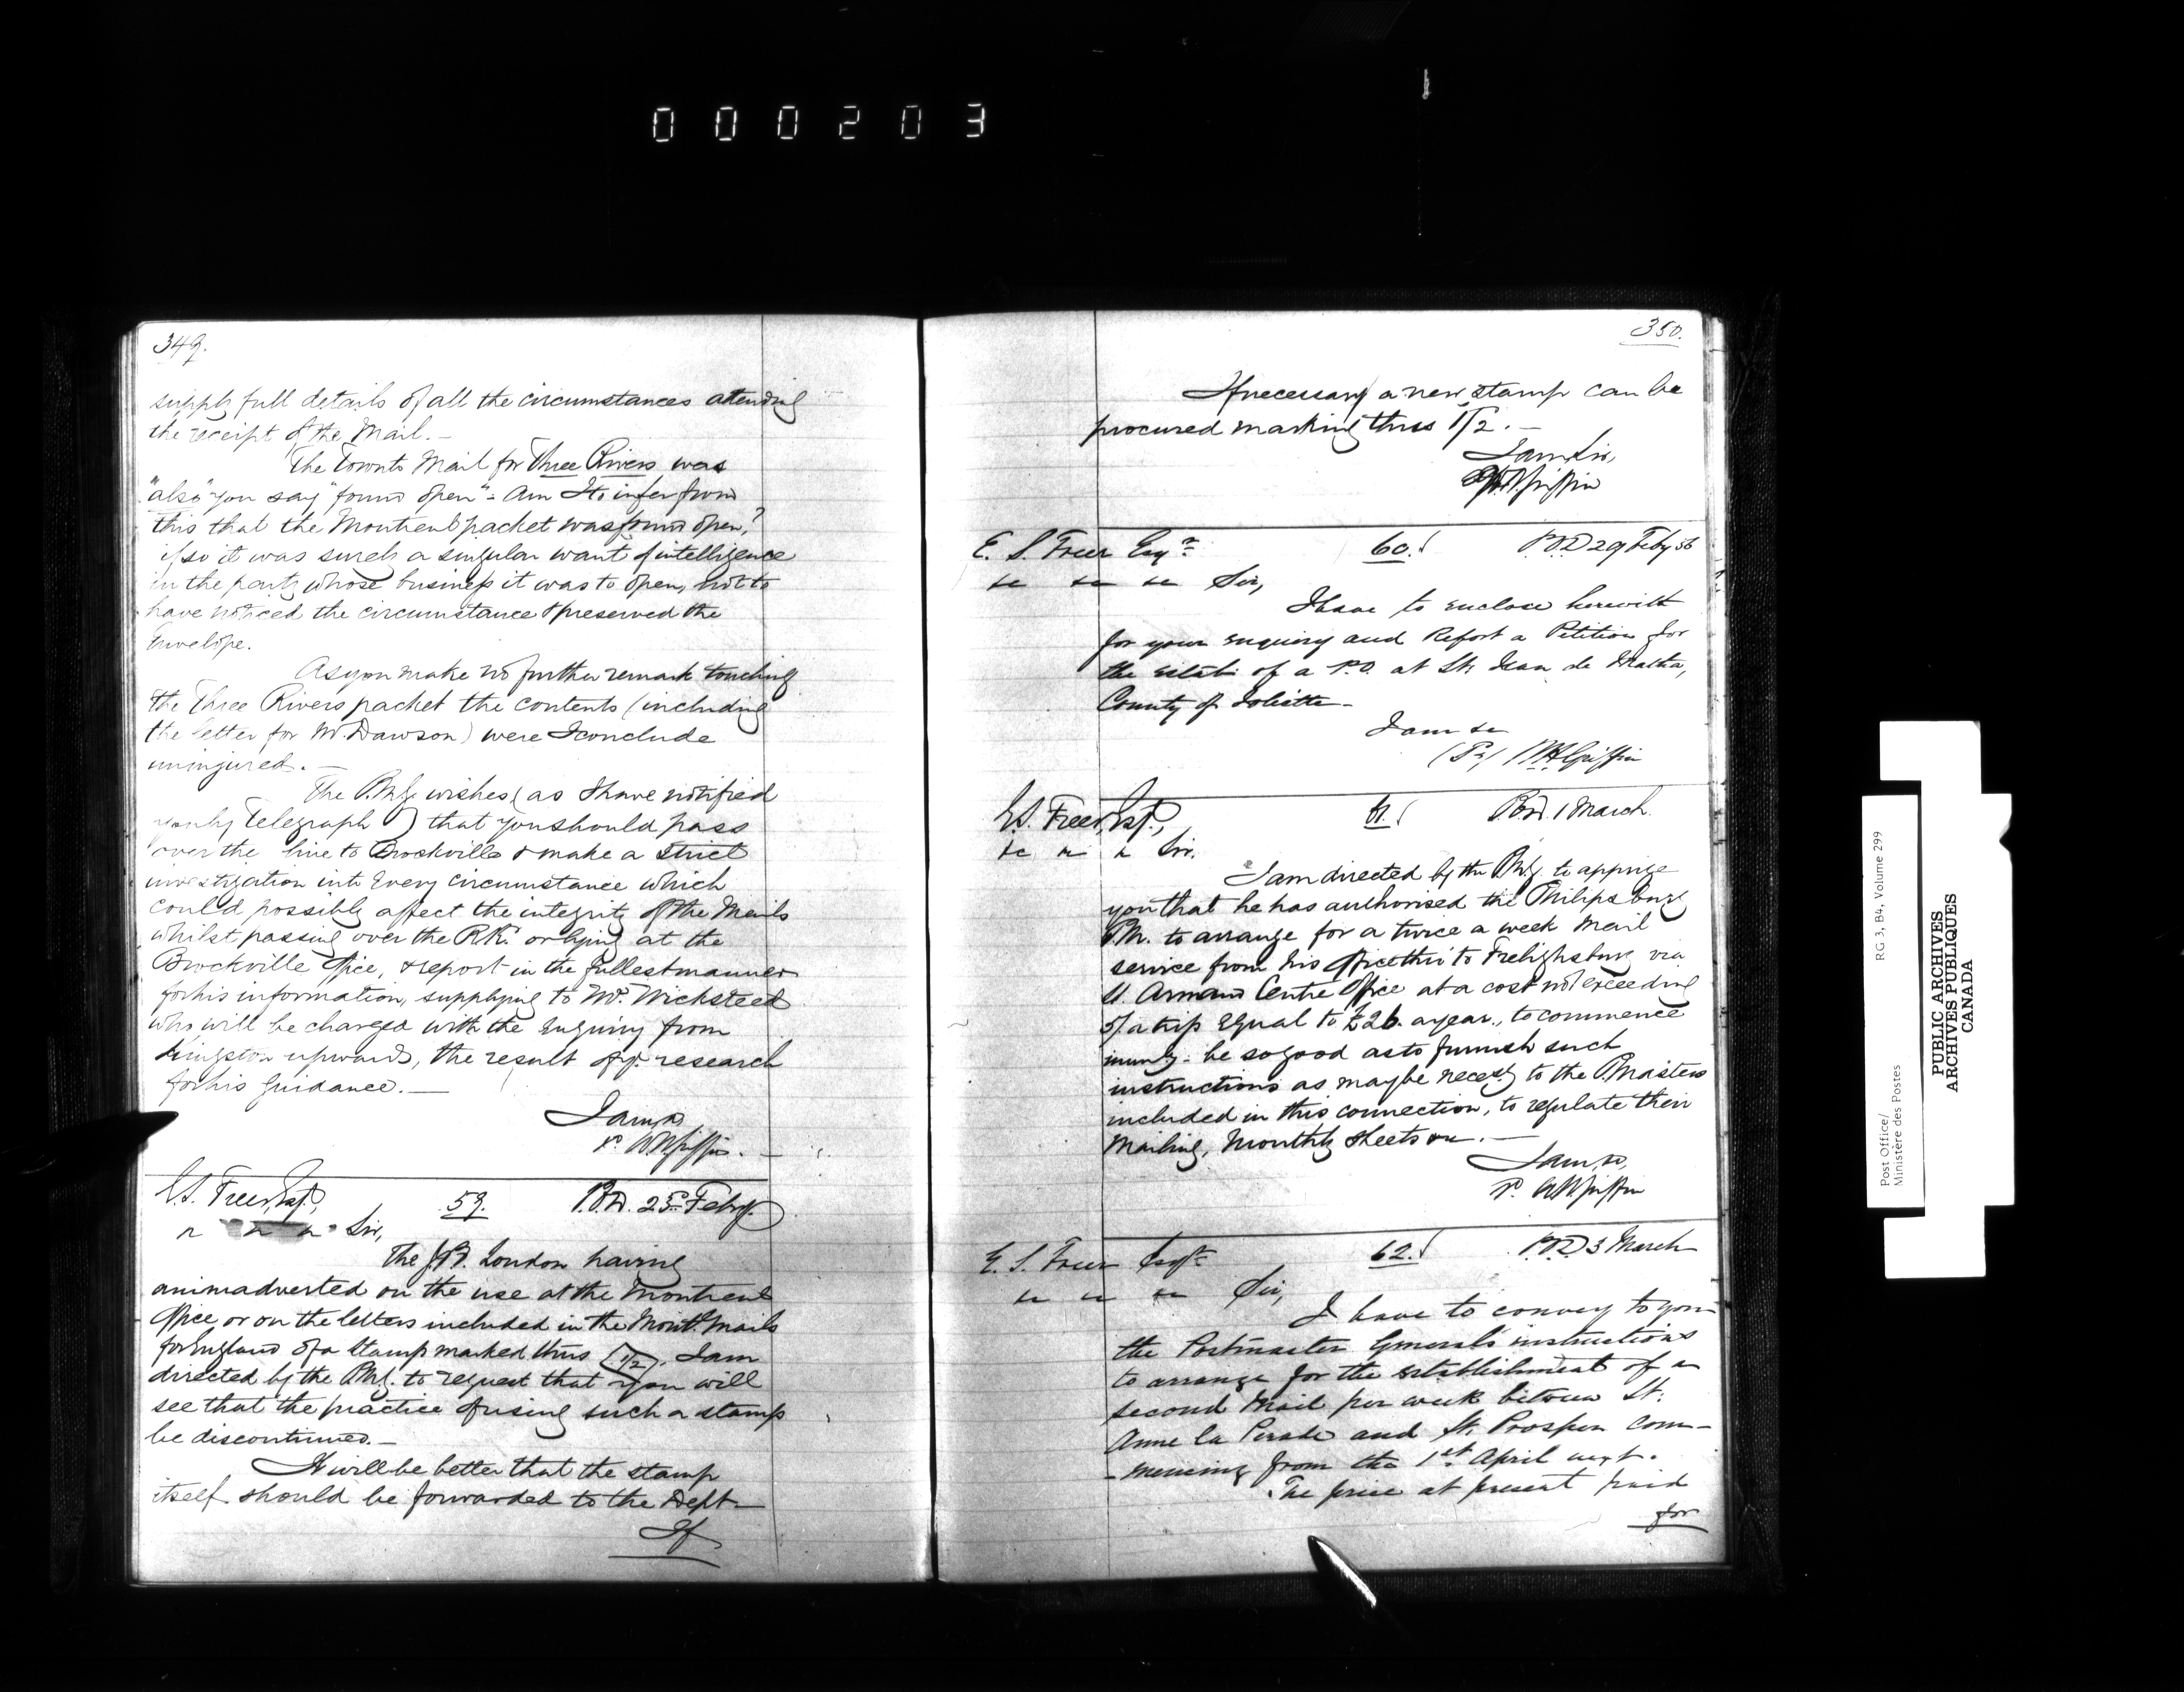 000203
349.
supply full details of all the circumstances attending
the receipt of the Mail. —
The Toronto Mail for Three Rivers was
"also" you say "found open" - Am I to infer from
this that the Montreal packet was found open?
if so it was surely a singular want of intelligence
in the party whose business it was to open, not to
have noticed the circumstance & preserved the
Envelope.
As you make no further remark touching
the Three Rivers packet the contents (including
the letter for Mr. Dawson) were I conclude
uninjured. —
The P.M.G. wishes (as I have notified
you by Telegraph) that you should pass
over the line to Brockville & make a strict
investigation into every circumstance which
could possibly affect the integrity of the Mails
whilst passing over the R.R. or lying at the
Brockville Office, & report in the fullest manner
for his information, supplying to Mr. Wicksteed
who will be charged with the Enquiry from
Kingston upwards, the result of yr. research
for his guidance. —
I am &c
W H Griffin. —
E.S. Freer, Esq.,
59.
P.O.D. 25 Feby.
" " " Sir,
The G.P.O. London having
animadverted on the use at the Montreal
Office or on the letters included in the Montl. Mails
for England of a Stamp marked thus (1/2), I am
directed by the P.M.G. to request that you will
see that the practice of using such a stamp
be discontinued. —
It will be better that the stamp
itself should be forwarded to the Dept. —
If
350.
If necessary a new stamp can be
procured marking thus 1/2. —
I am, Sir,
W H Griffin
E. S. Freer Esqre
60.
P.O.D 29 Feby 56
&c &c &c Sir,
I have to enclose herewith
for your enquiry and Report a Petition for
the estabt. of a P.O. at St. Jean de Matha,
County of Joliette —
I am &c
W H Griffin
E.S. Freer, Esq.,
61.
P.O.D. 1 March.
&c " " Sir.
I am directed by the P.M.G. to apprize
you that he has authorised the Philipsburg
P.M. to arrange for a twice a week Mail
service from his Office thro' to Frelighsburg via
St. Armand Centre Office at a cost not exceeding
5/ a trip Equal to £26. a year., to commence
immdy. - be so good as to furnish such
instructions as may be necesy to the P.Masters
included in this connection, to regulate their
Mailing, Monthly Sheets &c. —
I am, &c,
W H Griffin
E. S. Freer Esqre
62.
P.O.D 3 March
&c &c &c Sir,
I have to convey to you
the Postmaster General's instructions
to arrange for the establishment of a
second Mail per week between St.
Anne la Perade and St. Prosper com-
-mencing from the 1st April next.
The price at present paid
for
Post Office/
Ministère des Postes
RG 3, B4, Volume 299
PUBLIC ARCHIVES
ARCHIVES PUBLIQUES
CANADA